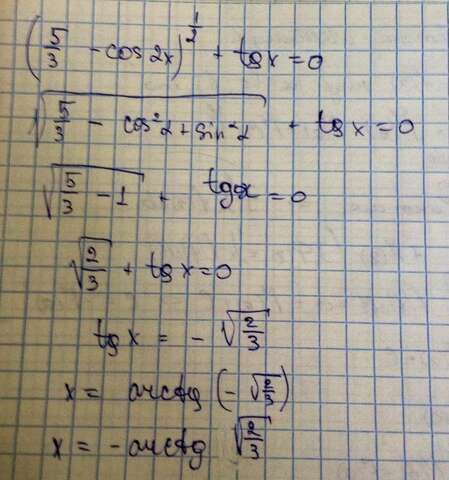 (5/3 - cos 2x)^(1/2) + tg x = 0
√(5/3 - cos²α + sin²α) + tg x = 0
√(5/3 - 1) + tg x = 0
√(2/3) + tg x = 0
tg x = - √(2/3)
x = arctg (- √(2/3))
x = - arctg √(2/3)